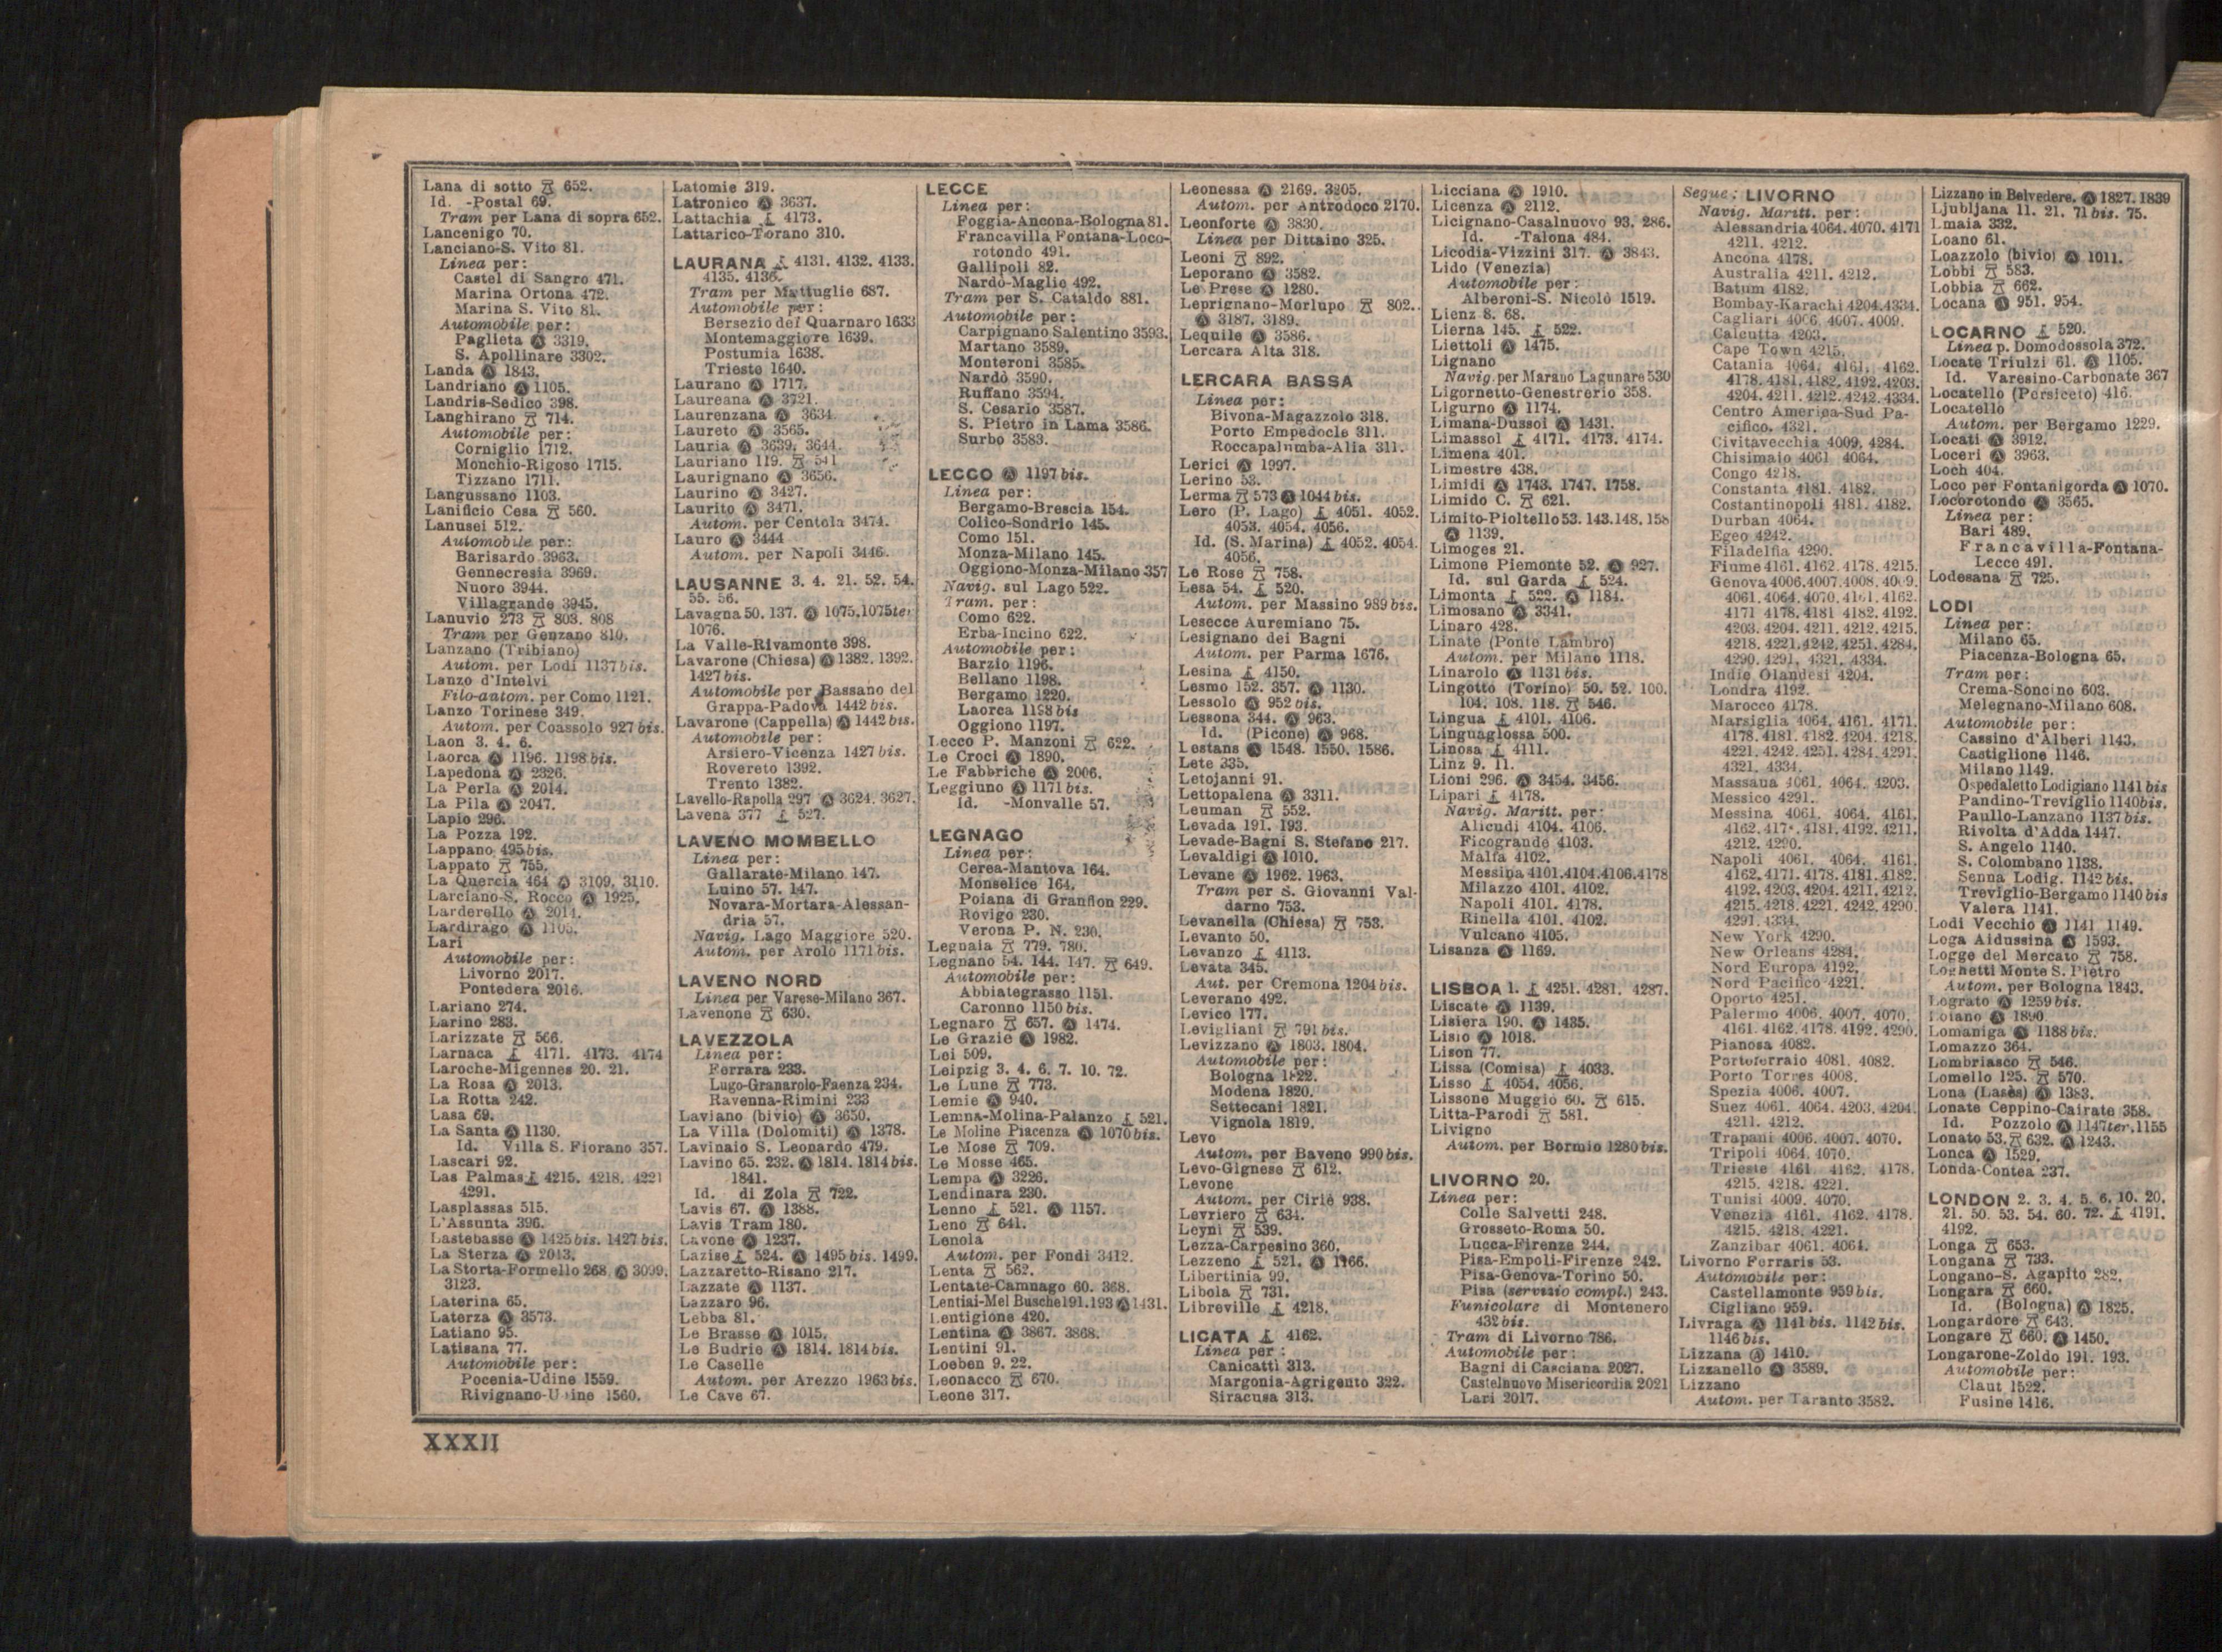 Lana di sotto 652.
Id. -Postal 69.
Tram per Lana di sopra 652.
Lancenigo 70.
Lanciano-S. Vito 81.
Linea per:
Castel di Sangro 471.
Marina Ortona 472.
Marina S. Vito 81.
Automobile per:
Paglieta Ⓐ 3319.
S. Apollinare 3302.
Landa Ⓐ 1843.
Landriano Ⓐ 1105.
Landris-Sedico 398.
Langhirano 714.
Automobile per:
Corniglio 1712.
Monchio-Rigoso 1715.
Tizzano 1711.
Langussano 1103.
Lanificio Cesa 560.
Lanusei 512.
Automobile per:
Barisardo 3963.
Gennecresia 3969.
Nuoro 3944.
Villagrande 3945.
Lanuvio 273 803. 808
Tram per Genzano 810.
Lanzano (Tribiano)
Autom. per Lodi 1137 bis.
Lanzo d'Intelvi
Filo-autom. per Como 1121.
Lanzo Torinese 349.
Autom. per Coassolo 927 bis.
Laon 3. 4. 6.
Laorca Ⓐ 1196. 1198 bis.
Lapedona Ⓐ 2326.
La Perla Ⓐ 2014.
La Pila Ⓐ 2047.
Lapio 296.
La Pozza 192.
Lappano 495 bis.
Lappato 755.
La Quercia 464 Ⓐ 3109. 3110.
Larciano-S. Rocco Ⓐ 1925.
Larderello Ⓐ 2014.
Lardirago Ⓐ 1105.
Lari
Automobile per:
Livorno 2017.
Pontedera 2016.
Lariano 274.
Larino 283.
Larizzate 566.
Larnaca 4171. 4173. 4174
Laroche-Migennes 20. 21.
La Rosa Ⓐ 2013.
La Rotta 242.
Lasa 69.
La Santa Ⓐ 1130.
Id. Villa S. Fiorano 357.
Lascari 92.
Las Palmas 4215. 4218. 4221
4291.
Lasplassas 515.
L'Assunta 396.
Lastebasse Ⓐ 1425 bis. 1427 bis.
La Sterza Ⓐ 2013.
La Storta-Formello 268 Ⓐ 3099.
3123.
Laterina 65.
Laterza Ⓐ 3573.
Latiano 95.
Latisana 77.
Automobile per:
Pocenia-Udine 1559.
Rivignano-Udine 1560.
Latomie 319.
Latronico Ⓐ 3637.
Lattachia 4173.
Lattarico-Torano 310.
LAURANA 4131. 4132. 4133.
4135. 4136.
Tram per Mattuglie 687.
Automobile per:
Bersezio del Quarnaro 1633
Montemaggiore 1639.
Postumia 1638.
Trieste 1640.
Laurano Ⓐ 1717.
Laureana Ⓐ 3721.
Laurenzana Ⓐ 3634.
Laureto Ⓐ 3565.
Lauria Ⓐ 3639. 3644.
Lauriano 119. 541
Laurignano Ⓐ 3656.
Laurino Ⓐ 3427.
Laurito Ⓐ 3471.
Autom. per Centola 3474.
Lauro Ⓐ 3444
Autom. per Napoli 3446.
LAUSANNE 3. 4. 21. 52. 54.
55. 56.
Lavagna 50. 137. Ⓐ 1075.1075ter
1076.
La Valle-Rivamonte 398.
Lavarone (Chiesa) Ⓐ 1382. 1392.
1427 bis.
Automobile per Bassano del
Grappa-Padova 1442 bis.
Lavarone (Cappella) Ⓐ 1442 bis.
Automobile per:
Arsiero-Vicenza 1427 bis.
Rovereto 1392.
Trento 1382.
Lavello-Rapolla 297 Ⓐ 3624. 3627.
Lavena 377 527.
LAVENO MOMBELLO
Linea per:
Gallarate-Milano 147.
Luino 57. 147.
Novara-Mortara-Alessan-
dria 57.
Navig. Lago Maggiore 520.
Autom. per Arolo 1171 bis.
LAVENO NORD
Linea per Varese-Milano 367.
Lavenone 630.
LAVEZZOLA
Linea per:
Ferrara 233.
Lugo-Granarolo-Faenza 234.
Ravenna-Rimini 233
Laviano (bivio) Ⓐ 3650.
La Villa (Dolomiti) Ⓐ 1378.
Lavinaio S. Leonardo 479.
Lavino 65. 232. Ⓐ 1814. 1814 bis.
1841.
Id. di Zola 722.
Lavis 67. Ⓐ 1388.
Lavis Tram 180.
Lavone Ⓐ 1237.
Lazise 524. Ⓐ 1495 bis. 1499.
Lazzaretto-Risano 217.
Lazzate Ⓐ 1137.
Lazzaro 96.
Lebba 81.
Le Brasse Ⓐ 1015.
Le Budrie Ⓐ 1814. 1814 bis.
Le Caselle
Autom. per Arezzo 1963 bis.
Le Cave 67.
LECCE
Linea per:
Foggia-Ancona-Bologna 81.
Francavilla Fontana-Loco-
rotondo 491.
Gallipoli 82.
Nardò-Maglie 492.
Tram per S. Cataldo 881.
Automobile per:
Carpignano Salentino 3593.
Martano 3589.
Monteroni 3585.
Nardò 3590.
Ruffano 3594.
S. Cesario 3587.
S. Pietro in Lama 3586.
Surbo 3583.
LECCO Ⓐ 1197 bis.
Linea per:
Bergamo-Brescia 154.
Colico-Sondrio 145.
Como 151.
Monza-Milano 145.
Oggiono-Monza-Milano 357
Navig. sul Lago 522.
Tram. per:
Como 622.
Erba-Incino 622.
Automobile per:
Barzio 1196.
Bellano 1198.
Bergamo 1220.
Laorca 1198 bis
Oggiono 1197.
Lecco P. Manzoni 622.
Le Croci Ⓐ 1890.
Le Fabbriche Ⓐ 2006.
Leggiuno Ⓐ 1171 bis.
Id. -Monvalle 57.
LEGNAGO
Linea per:
Cerea-Mantova 164.
Monselice 164.
Poiana di Granfion 229.
Rovigo 230.
Verona P. N. 230.
Legnaia 779. 780.
Legnano 54. 144. 147. 649.
Automobile per:
Abbiategrasso 1151.
Caronno 1150 bis.
Legnaro 657. Ⓐ 1474.
Le Grazie Ⓐ 1982.
Lei 509.
Leipzig 3. 4. 6. 7. 10. 72.
Le Lune 773.
Lemie Ⓐ 940.
Lemna-Molina-Palanzo 521.
Le Moline Piacenza Ⓐ 1070 bis.
Le Mose 709.
Le Mosse 465.
Lempa Ⓐ 3226.
Lendinara 230.
Lenno 521. Ⓐ 1157.
Leno 641.
Lenola
Autom. per Fondi 3412.
Lenta 562.
Lentate-Camnago 60. 368.
Lentiai-Mel Busche 191.193 Ⓐ 1431.
Lentigione 420.
Lentina Ⓐ 3867. 3868.
Lentini 91.
Loeben 9. 22.
Leonacco 670.
Leone 317.
Leonessa Ⓐ 2169. 3205.
Autom. per Antrodoco 2170.
Leonforte Ⓐ 3830.
Linea per Dittaino 325.
Leoni 892.
Leporano Ⓐ 3582.
Le Prese Ⓐ 1280.
Leprignano-Morlupo 802.
Ⓐ 3187. 3189.
Lequile Ⓐ 3586.
Lercara Alta 318.
LERCARA BASSA
Linea per:
Bivona-Magazzolo 318.
Porto Empedocle 311.
Roccapalumba-Alia 311.
Lerici Ⓐ 1997.
Lerino 53.
Lerma 573 Ⓐ 1044 bis.
Lero (P. Lago) 4051. 4052.
4053. 4054. 4056.
Id. (S. Marina) 4052. 4054.
4056.
Le Rose 758.
Lesa 54. 520.
Autom. per Massino 989 bis.
Lesecce Auremiano 75.
Lesignano dei Bagni
Autom. per Parma 1676.
Lesina 4150.
Lesmo 152. 357. Ⓐ 1130.
Lessolo Ⓐ 952 bis.
Lessona 344. Ⓐ 963.
Id. (Picone) Ⓐ 968.
Lestans Ⓐ 1548. 1550. 1586.
Lete 335.
Letojanni 91.
Lettopalena Ⓐ 3311.
Leuman 552.
Levada 191. 193.
Levade-Bagni S. Stefano 217.
Levaldigi Ⓐ 1010.
Levane Ⓐ 1962. 1963.
Tram per S. Giovanni Val-
darno 753.
Levanella (Chiesa) 753.
Levanto 50.
Levanzo 4113.
Levata 345.
Aut. per Cremona 1204 bis.
Leverano 492.
Levico 177.
Levigliani 791 bis.
Levizzano Ⓐ 1803. 1804.
Automobile per:
Bologna 1822.
Modena 1820.
Settecani 1821.
Vignola 1819.
Levo
Autom. per Baveno 990 bis.
Levo-Gignese 612.
Levone
Autom. per Ciriè 938.
Levriero 634.
Leyni 539.
Lezza-Carpesino 360.
Lezzeno 521. Ⓐ 1166.
Libertinia 99.
Libola 731.
Libreville 4218.
LICATA 4162.
Linea per:
Canicattì 313.
Margonia-Agrigento 322.
Siracusa 313.
Licciana Ⓐ 1910.
Licenza Ⓐ 2112.
Licignano-Casalnuovo 93. 286.
Id. -Talona 484.
Licodia-Vizzini 317. Ⓐ 3843.
Lido (Venezia)
Automobile per:
Alberoni-S. Nicolò 1519.
Lienz 8. 68.
Lierna 145. 522.
Liettoli Ⓐ 1475.
Lignano
Navig. per Marano Lagunare 530
Ligornetto-Genestrerio 358.
Ligurno Ⓐ 1174.
Limana-Dussoi Ⓐ 1431.
Limassol 4171. 4173. 4174.
Limena 401.
Limestre 438.
Limidi Ⓐ 1743. 1747. 1758.
Limido C. 621.
Limito-Pioltello 53. 143. 148. 158
Ⓐ 1139.
Limoges 21.
Limone Piemonte 52. Ⓐ 927.
Id. sul Garda 524.
Limonta 522. Ⓐ 1184.
Limosano Ⓐ 3341.
Linaro 428.
Linate (Ponte Lambro)
Autom. per Milano 1118.
Linarolo Ⓐ 1131 bis.
Lingotto (Torino) 50. 52. 100.
104. 108. 118. 546.
Lingua 4101. 4106.
Linguaglossa 500.
Linosa 4111.
Linz 9. 11.
Lioni 296. Ⓐ 3454. 3456.
Lipari 4178.
Navig. Maritt. per:
Alicudi 4104. 4106.
Ficogrande 4103.
Malfa 4102.
Messina 4101.4104.4106.4178
Milazzo 4101. 4102.
Napoli 4101. 4178.
Rinella 4101. 4102.
Vulcano 4105.
Lisanza Ⓐ 1169.
LISBOA 1. 4251. 4281. 4287.
Liscate Ⓐ 1139.
Lisiera 190. Ⓐ 1435.
Lisio Ⓐ 1018.
Lison 77.
Lissa (Comisa) 4033.
Lisso 4054. 4056.
Lissone Muggiò 60. 615.
Litta-Parodi 581.
Livigno
Autom. per Bormio 1280 bis.
LIVORNO 20.
Linea per:
Colle Salvetti 248.
Grosseto-Roma 50.
Lucca-Firenze 244.
Pisa-Empoli-Firenze 242.
Pisa-Genova-Torino 50.
Pisa (servizio compl.) 243.
Funicolare di Montenero
432 bis.
Tram di Livorno 786.
Automobile per:
Bagni di Casciana 2027.
Castelnuovo Misericordia 2021
Lari 2017.
Segue: LIVORNO
Navig. Maritt. per:
Alessandria 4064. 4070. 4171
4211. 4212.
Ancona 4178.
Australia 4211. 4212.
Batum 4182.
Bombay-Karachi 4204.4334.
Cagliari 4006. 4007. 4009.
Calcutta 4203.
Cape Town 4215.
Catania 4064. 4161. 4162.
4178. 4181. 4182. 4192. 4203.
4204. 4211. 4212. 4242. 4334.
Centro America-Sud Pa-
cifico. 4321.
Civitavecchia 4009. 4284.
Chisimaio 4061 4064.
Congo 4218.
Constanta 4181. 4182.
Costantinopoli 4181. 4182.
Durban 4064.
Egeo 4242.
Filadelfia 4290.
Fiume 4161. 4162. 4178. 4215.
Genova 4006.4007.4008. 4009.
4061. 4064. 4070. 4161. 4162.
4171 4178. 4181 4182. 4192.
4203. 4204. 4211. 4212. 4215.
4218. 4221. 4242. 4251. 4284.
4290. 4291. 4321. 4334.
Indie Olandesi 4204.
Londra 4192.
Marocco 4178.
Marsiglia 4064. 4161. 4171.
4178. 4181. 4182. 4204. 4218.
4221. 4242. 4251. 4284. 4291.
4321. 4334.
Massaua 4061. 4064. 4203.
Messico 4291.
Messina 4061. 4064. 4161.
4162. 4181. 4192. 4211.
4212. 4290.
Napoli 4061. 4064. 4161.
4162. 4171. 4178. 4181. 4182.
4192. 4203. 4204. 4211. 4212.
4215. 4218. 4221. 4242. 4290.
4291. 4334.
New York 4290.
New Orleans 4284.
Nord Europa 4192.
Nord Pacifico 4221.
Oporto 4251.
Palermo 4006. 4007. 4070.
4161. 4162. 4178. 4192. 4290.
Pianosa 4082.
Portoferraio 4081. 4082.
Porto Torres 4008.
Spezia 4006. 4007.
Suez 4061. 4064. 4203. 4204.
4211. 4212.
Trapani 4006. 4007. 4070.
Tripoli 4064. 4070.
Trieste 4161. 4162. 4178.
4215. 4218. 4221.
Tunisi 4009. 4070.
Venezia 4161. 4162. 4178.
4215. 4218. 4221.
Zanzibar 4061. 4064.
Livorno Ferraris 53.
Automobile per:
Castellamonte 959 bis.
Cigliano 959.
Livraga Ⓐ 1141 bis. 1142 bis.
1146 bis.
Lizzana Ⓐ 1410.
Lizzanello Ⓐ 3589.
Lizzano
Autom. per Taranto 3582.
Lizzano in Belvedere. Ⓐ 1827. 1839
Ljubljana 11. 21. 71 bis. 75.
Lmaia 332.
Loano 61.
Loazzolo (bivio) Ⓐ 1011.
Lobbi 583.
Lobbia 662.
Locana Ⓐ 951. 954.
LOCARNO 520.
Linea p. Domodossola 372.
Locate Triulzi 61. Ⓐ 1105.
Id. Varesino-Carbonate 367
Locatello (Persiceto) 416.
Locatello
Autom. per Bergamo 1229.
Locati Ⓐ 3912.
Loceri Ⓐ 3963.
Loch 404.
Loco per Fontanigorda Ⓐ 1070.
Locorotondo Ⓐ 3565.
Linea per:
Bari 489.
Francavilla-Fontana-
Lecce 491.
Lodesana 725.
LODI
Linea per:
Milano 65.
Piacenza-Bologna 65.
Tram per:
Crema-Soncino 603.
Melegnano-Milano 608.
Automobile per:
Cassino d'Alberi 1143.
Castiglione 1146.
Milano 1149.
Ospedaletto Lodigiano 1141 bis
Pandino-Treviglio 1140bis.
Paullo-Lanzano 1137 bis.
Rivolta d'Adda 1447.
S. Angelo 1140.
S. Colombano 1138.
Senna Lodig. 1142 bis.
Treviglio-Bergamo 1140 bis
Valera 1141.
Lodi Vecchio Ⓐ 1141 1149.
Loga Aidussina Ⓐ 1593.
Logge del Mercato 758.
Lognetti Monte S. Pietro
Autom. per Bologna 1843.
Lograto Ⓐ 1259 bis.
Loiano Ⓐ 1890.
Lomaniga Ⓐ 1188 bis.
Lomazzo 364.
Lombriasco 546.
Lomello 125. 570.
Lona (Lasès) Ⓐ 1383.
Lonate Ceppino-Cairate 358.
Id. Pozzolo Ⓐ 1147ter.1155
Lonato 53. 632. Ⓐ 1243.
Lonca Ⓐ 1529.
Londa-Contea 237.
LONDON 2. 3. 4. 5. 6. 10. 20.
21. 50. 53. 54. 60. 72. 4191.
4192.
Longa 653.
Longana 733.
Longano-S. Agapito 282.
Longara 660.
Id. (Bologna) Ⓐ 1825.
Longardore 643.
Longare 660. Ⓐ 1450.
Longarone-Zoldo 191. 193.
Automobile per:
Claut 1522.
Fusine 1416.
XXXII